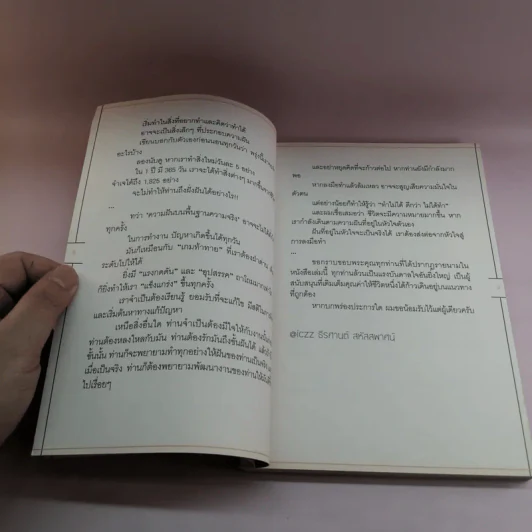 เริ่มทำในสิ่งที่อยากทำและคิดว่าทำได้
อาจจะเป็นสิ่งเล็กๆ ที่ประกอบความฝัน
เขียนบอกกับตัวเองก่อนนอนทุกวันว่า พรุ่งนี้
อะไรบ้าง
ลองนับดู หากเราทำสิ่งใหม่วันละ 5 อย่าง
ใน 1 ปี มี 365 วัน เราจะได้ทำสิ่งต่างๆ มากขึ้น
จำเจได้ถึง 1,825 อย่าง
จะไม่ทำให้ท่านถึงฝั่งฝันได้อย่างไร!!
...
ทว่า "ความฝันบนพื้นฐานความจริง" อาจจะไม่
ทุกครั้ง
ในการทำงาน ปัญหาเกิดขึ้นได้ทุกวัน
มันก็เหมือนกับ "เกมท้าทาย" ที่เราต้องฝ่าด่าน
ระดับไปให้ได้
ยิ่งมี "แรงกดดัน" และ "อุปสรรค" ถาโถม
ก็ยิ่งทำให้เรา "แข็งแกร่ง" ขึ้นทุกครั้ง
เราจำเป็นต้องเรียนรู้ ยอมรับที่จะแก้ไข
และเริ่มต้นหาทางแก้ปัญหา
เหนือสิ่งอื่นใด ท่านจำเป็นต้องมีใจให้กับงานนั้น
ท่านต้องหลงใหลกับมัน ท่านต้องรักมันถึงขั้นฝันได้
ขั้นนั้น ท่านก็จะพยายามทำทุกอย่างให้ฝันของท่านเป็น
เมื่อเป็นจริง ท่านก็ต้องพยายามพัฒนางานของท่านให้
ไปเรื่อยๆ
และอย่าหยุดคิดที่จะก้าวต่อไป หากท่านยังมีกำลังมาก
พอ
หากลงมือทำแล้วล้มเหลว อาจจะสูญเสียความมั่นใจใน
ตัวตน
แต่อย่างน้อยก็ทำให้รู้ว่า "ทำไม่ได้ ดีกว่า ไม่ได้ทำ"
และผมเชื่อเสมอว่า ชีวิตจะมีความหมายมากขึ้น หาก
เรากำลังเดินตามความฝันที่อยู่ในหัวใจตัวเอง
ฝันที่อยู่ในหัวใจจะเป็นจริงได้ เราต้องส่งต่อจากหัวใจสู่
การลงมือทำ
...
ขอกราบขอบพระคุณทุกท่านที่ได้ปรากฏรายนามใน
หนังสือเล่มนี้ ทุกท่านล้วนเป็นแรงบันดาลใจอันยิ่งใหญ่ เป็นผู้
สนับสนุนที่เติมเต็มคุณค่าให้ชีวิตหนึ่งได้ก้าวเดินอยู่บนแนวทาง
ที่ถูกต้อง
หากบกพร่องประการใด ผมขอน้อมรับไว้แต่ผู้เดียวครับ
@iczz ธีรภานต์ สหัสสพาศน์